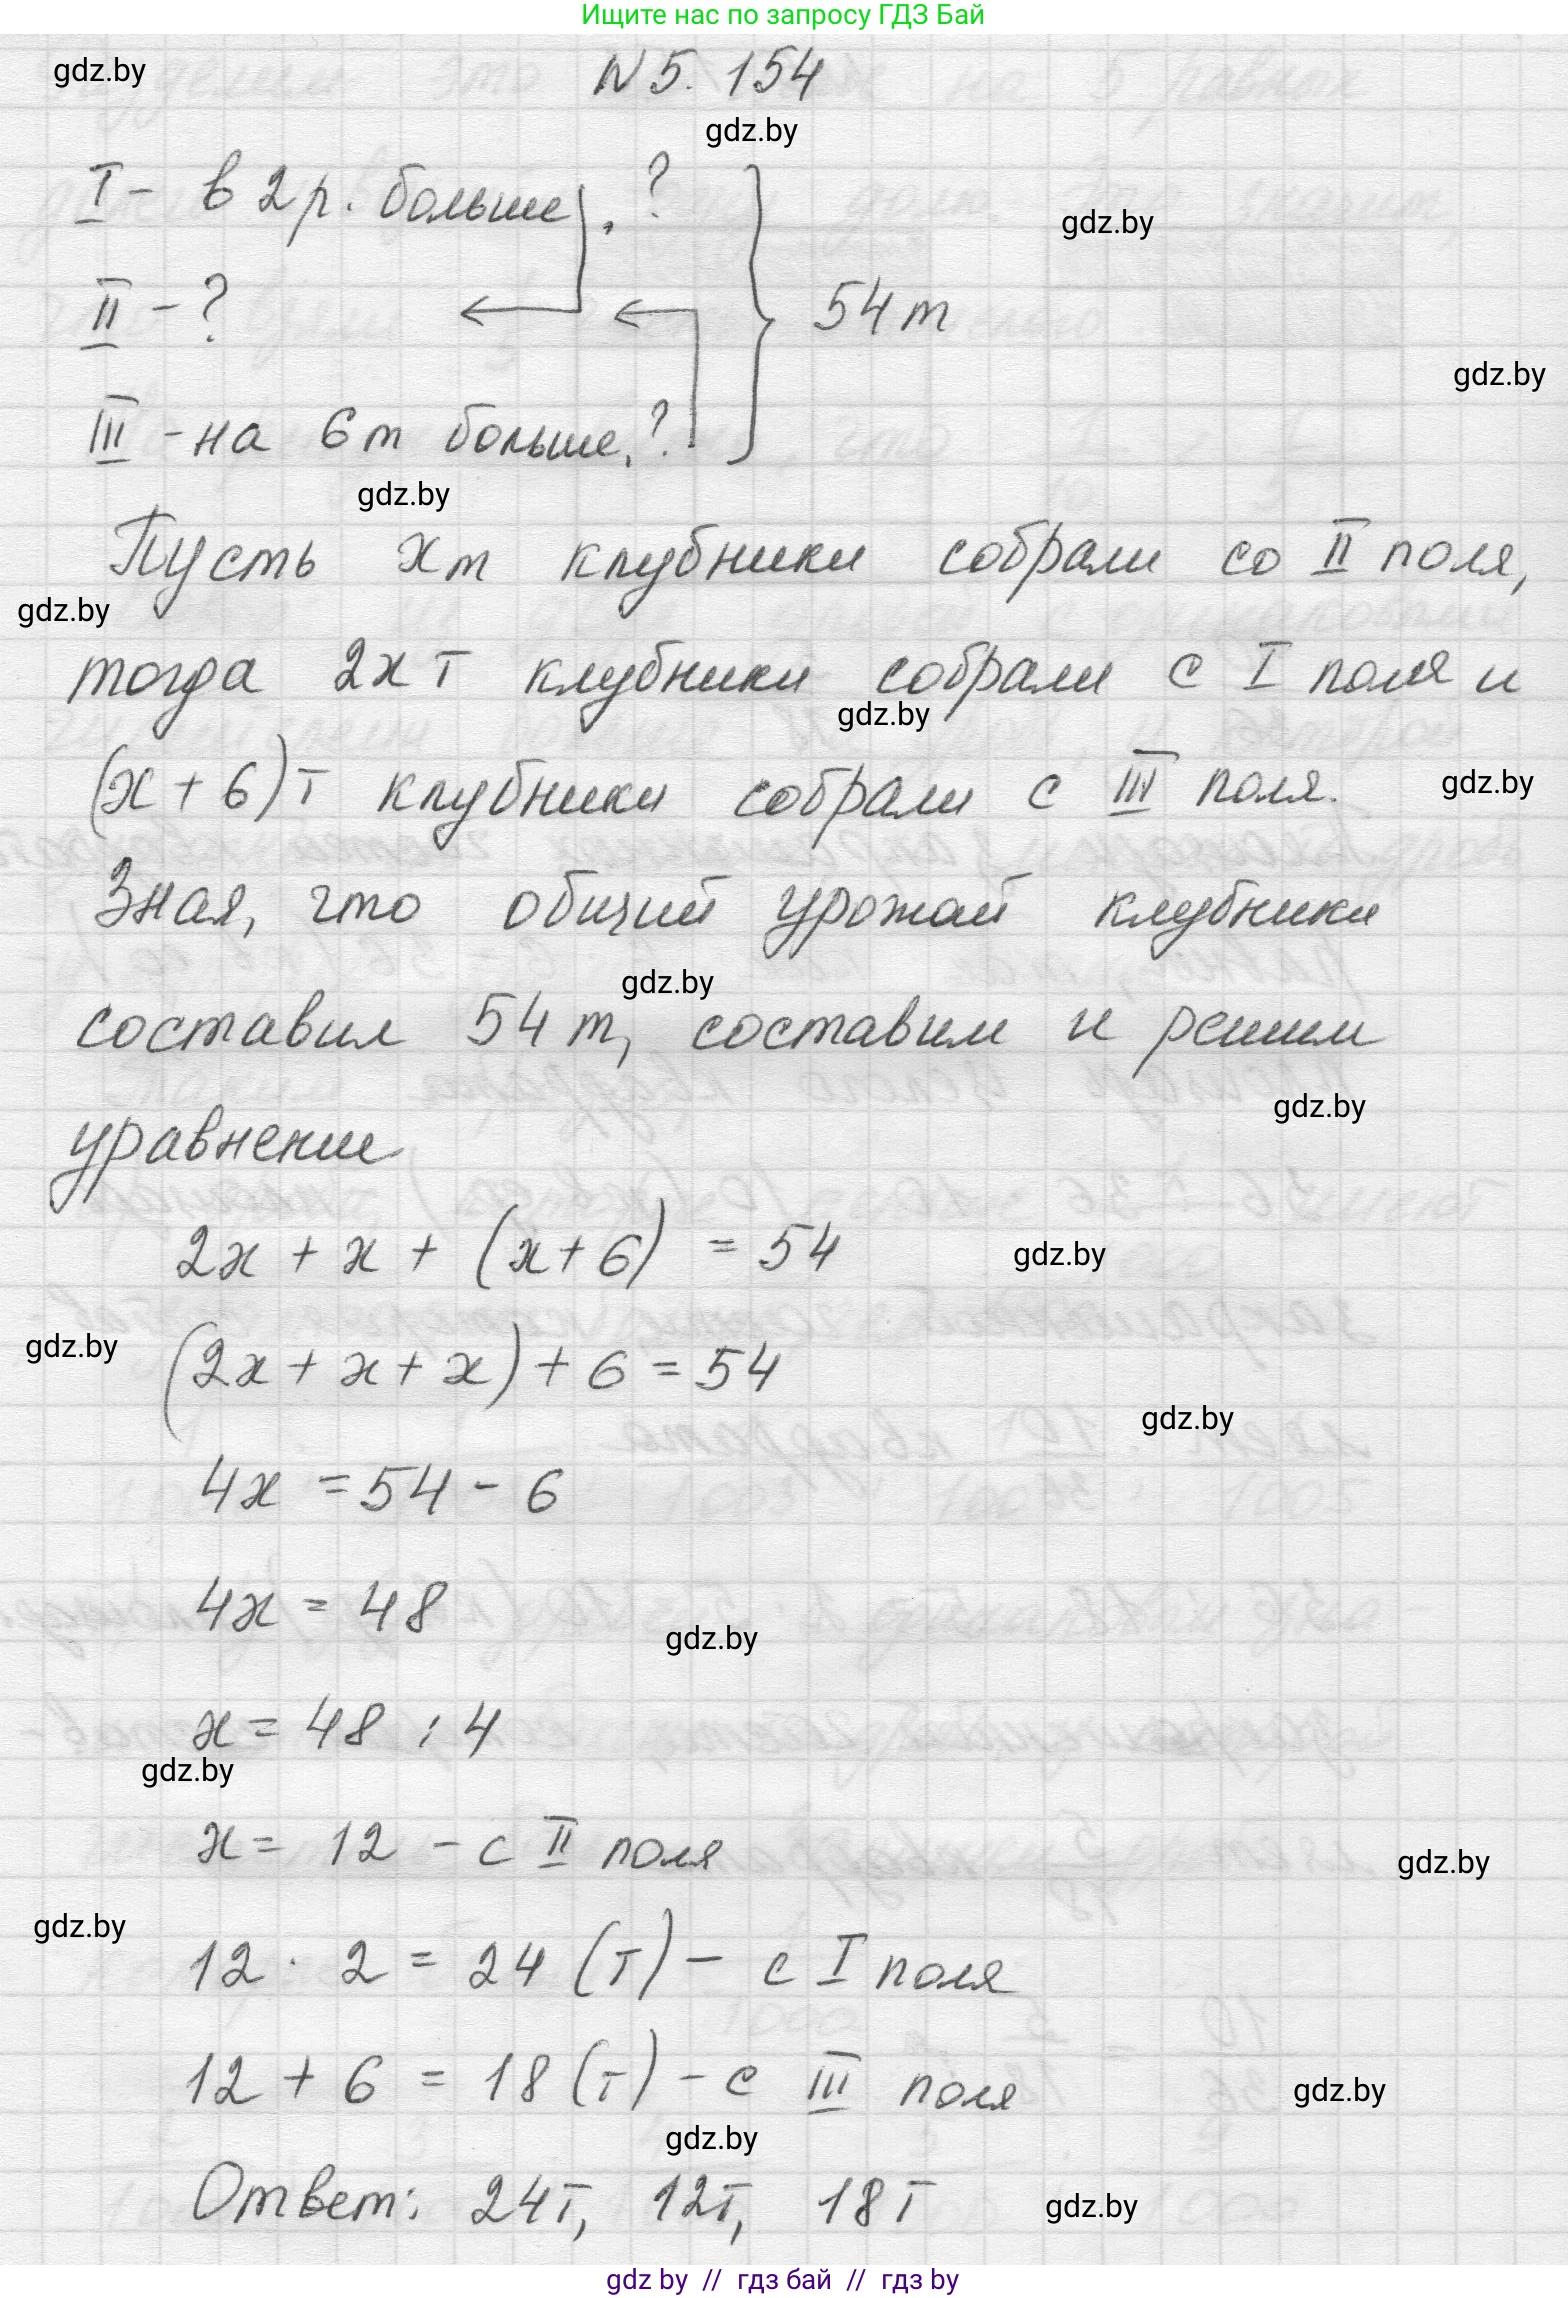 Ищите нас по запросу ГДЗ Бай
N 5. 154
gdz.by
gdz.by
I - в 2 р. больше, ?
gdz.by
II - ?
54 т
gdz.by
III - на 6 т больше, ?
gdz.by
Пусть х т клубники собрали со II поля,
gdz.by
тогда 2х т клубники собрали с I поля и
gdz.by
(х + 6) т клубники собрали с III поля.
gdz.by
Зная, что общий урожай клубники
gdz.by
составил 54 т, составим и решим
gdz.by
уравнение
2х + х + (х + 6) = 54
gdz.by
gdz.by
(2х + х + х) + 6 = 54
gdz.by
4х = 54 - 6
4х = 48
gdz.by
х = 48 : 4
gdz.by
х = 12 - с II поля
gdz.by
gdz.by
12 · 2 = 24 (т) - с I поля
12 + 6 = 18 (т) - с III поля
gdz.by
gdz.by
Ответ: 24т, 12т, 18т
gdz.by
gdz by // гдз бай // гдз by